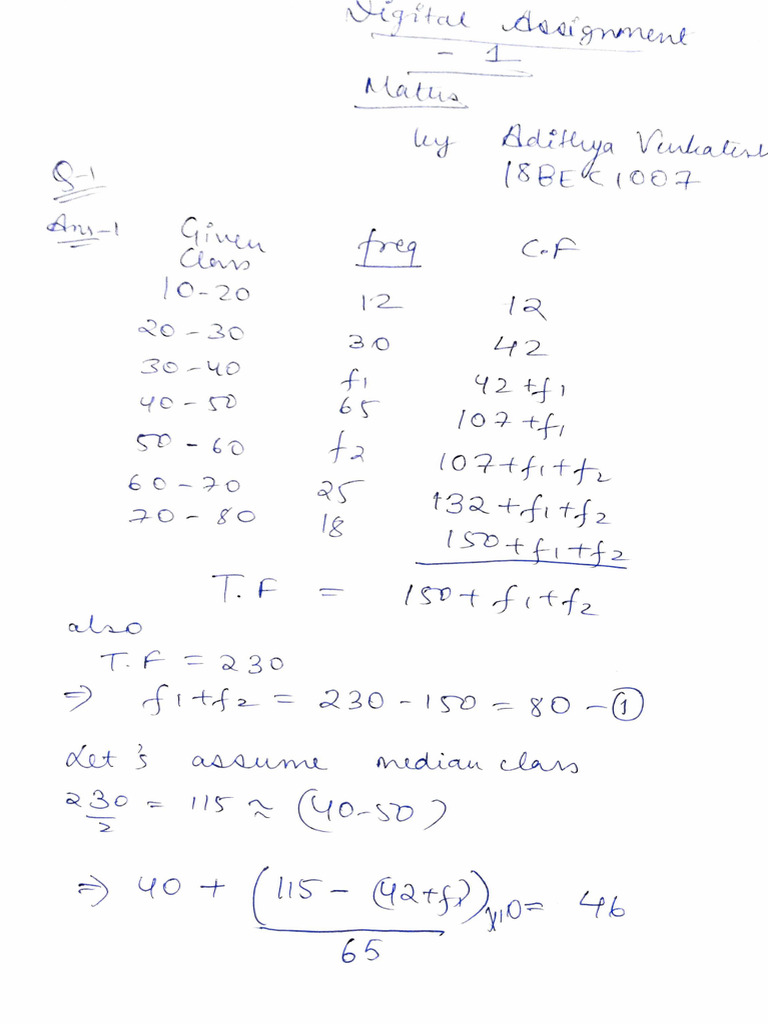 Digital Assignment
- 1
Maths
by Adithya Venkatesh
18BEC1007
Q-1
Ans-1 Given Class freq C.F
10-20 12 12
20-30 30 42
30-40 f1 42+f1
40-50 65 107+f1
50-60 f2 107+f1+f2
60-70 25 132+f1+f2
70-80 18 150+f1+f2
T.F = 150+f1+f2
also
T.F = 230
⇒ f1+f2 = 230-150 = 80 - ①
Let's assume median class
230/2 = 115 ≈ (40-50)
⇒ 40 + (115 - (42+f1))/65 x10 = 46